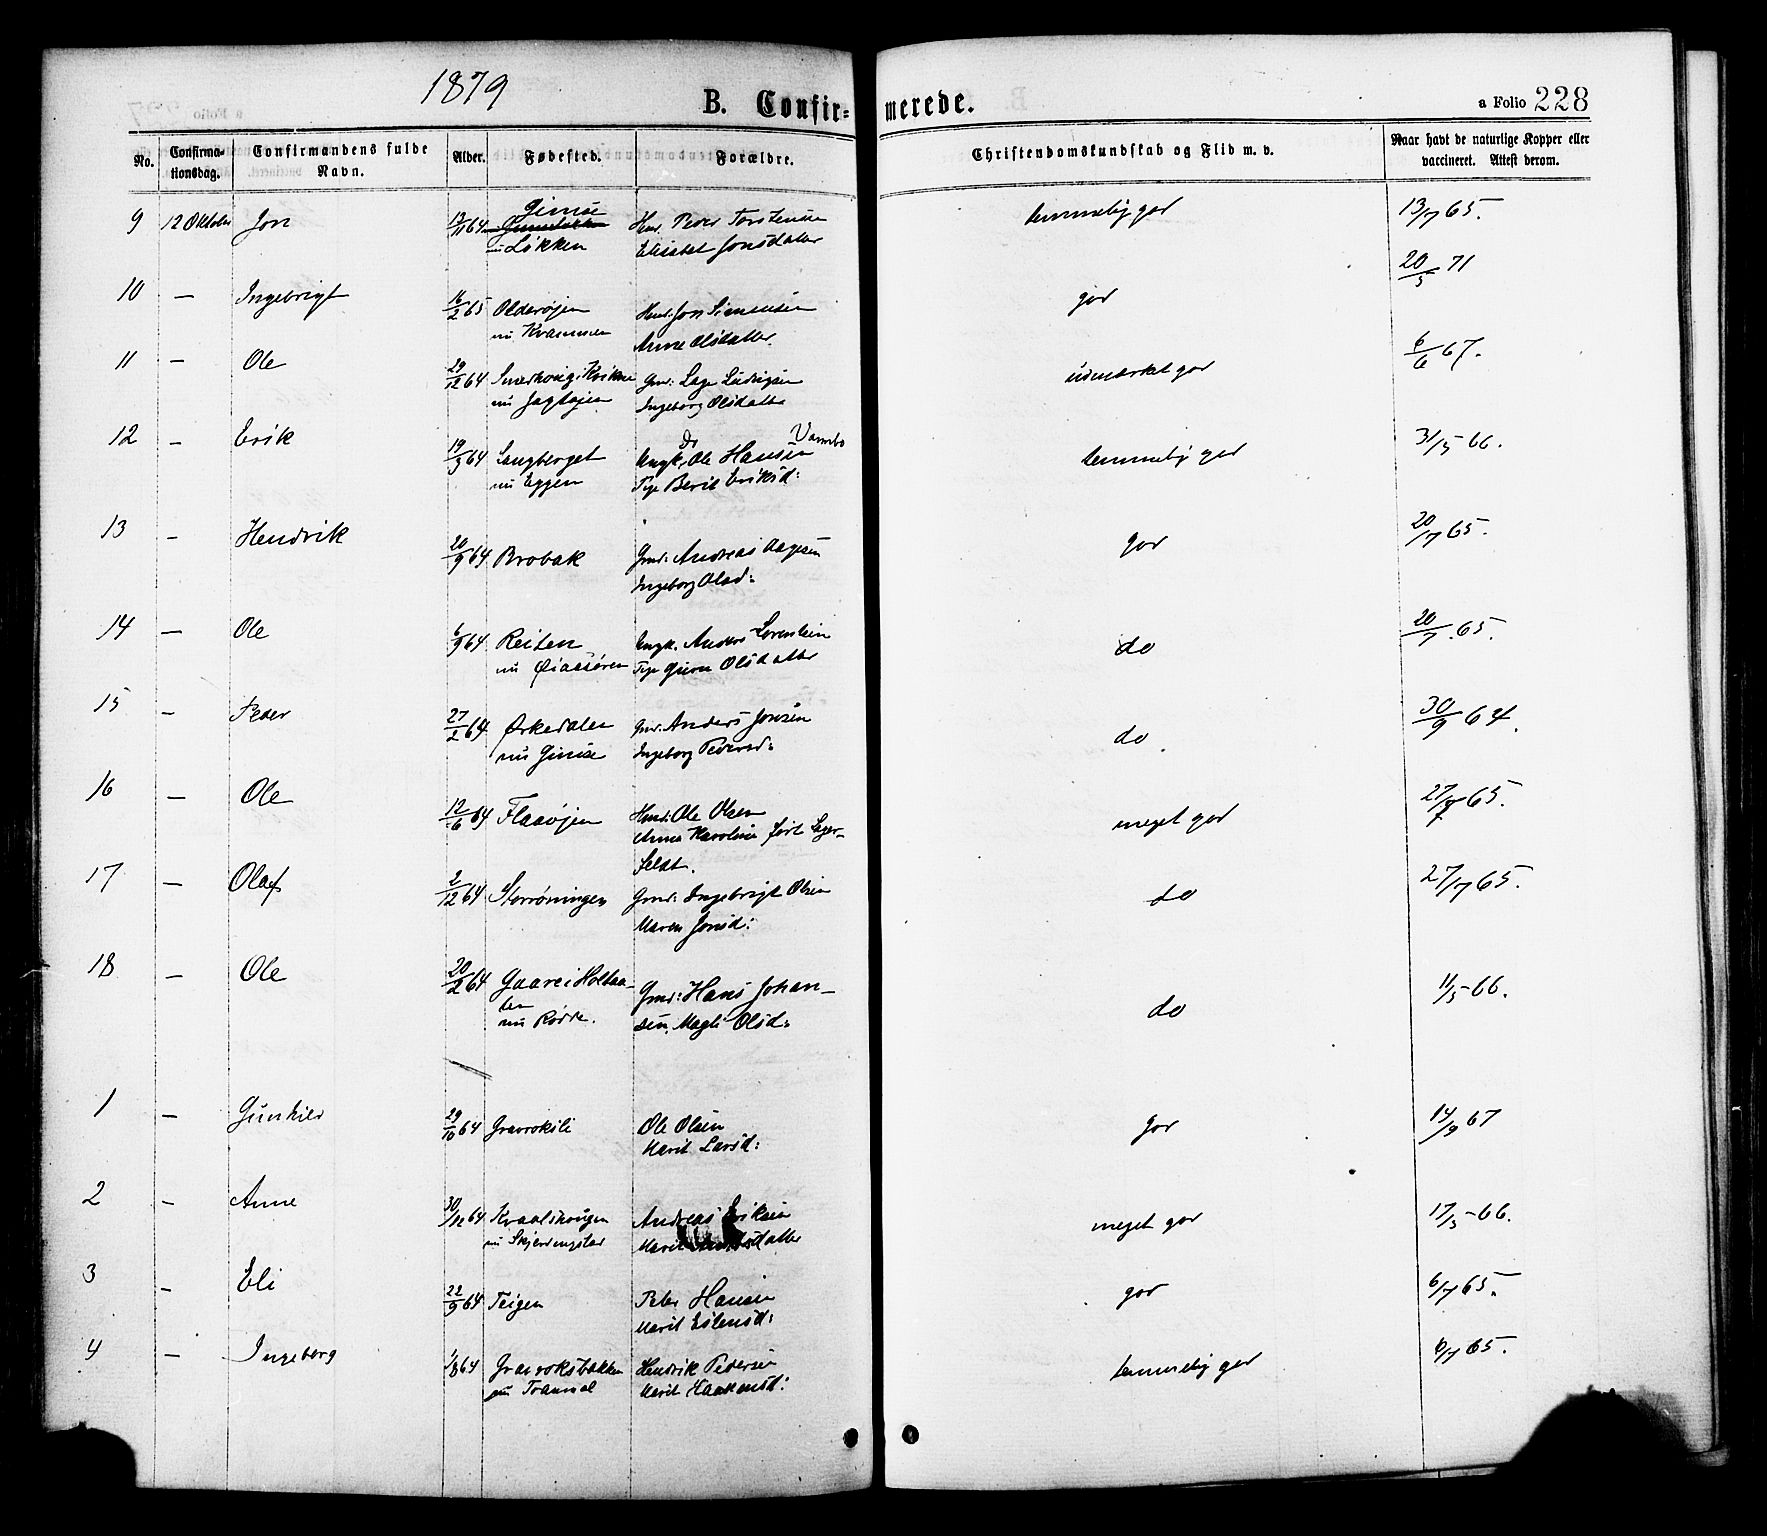 1879
B. Confir=
merede.
a Folio 228
No.
Confirma-
tionsdag.
Confirmandens fulde
Navn.
Alder.
Fødested.
Forældre.
Christendomskundskab og Flid m. v.
Naar havt de naturlige Kopper eller
vaccineret. Attest derom.
9 12 Oktober Jon 64 Gimse Hmd. Peder Torstensen temmelig god 13/7 65.
nu Løkken Elisabet Jonsdatter
10 — Ingebrigt 16/2 65 Olderøien Hmd: Jon Simensen god 20/5 71
nu Kvammen Anne Olsdatter.
11 — Ole 29/12 64 i Kvikne Gmd: Lage Ludvigsen udmærket god 6/6 67.
nu Jagtøien Ingeborg Olsdatter
12 — Erik 19/3 64 Langberget Ungk. Ole Hansen temmelig god 31/5 66.
nu Eggen Pige Berit Eriksd:
13 — Hendrik 20/9 64 Brobak Gmd: Andreas Aagesen god 20/7 65.
Ingeborg Olsd:
14 — Ole 6/9 64 Reiten Ungk. Anders Lorentsen do 20/7 65.
nu Øiaasøren Pige Guru Olsdatter
15 — Peder 27/2 64 Ørkedalen Gmd. Anders Jonsen do 30/9 64.
nu Gimse Ingeborg Pedersd:
16 — Ole 12/6 64 Flaaøjen Hmd: Ole Olsen meget god 27/7 65.
Anne Karoline født Leger-
feldt.
17 — Olaf 2/12 64 Storrøningen Gmd: Ingebrigt Olsen do 27/7 65.
Maren Jonsd:
18 — Ole 20/2 64 Gaare i Holtaa- Gmd: Hans Johan- do 11/5 66.
len
nu Rødde. sen, Magli Olsd:
1 — Gunhild 29/10 64 Gravraksli Ole Olsen god 14/9 67
Marit Larsd:
2 — Anne 30/12 64 Kvaalshougen Andreas Eriksen meget god 17/5 66.
nu Skjerdingstad Marit
3 — Eli 22/9 64 Teigen Peter Hansen god 6/7 65.
Marit Estensd:
4 — Ingeborg 1/8 64 Gravroksbakken Hendrik Pedersen temmelig god 6/7 65.
nu Tranmel Marit Haakensd: